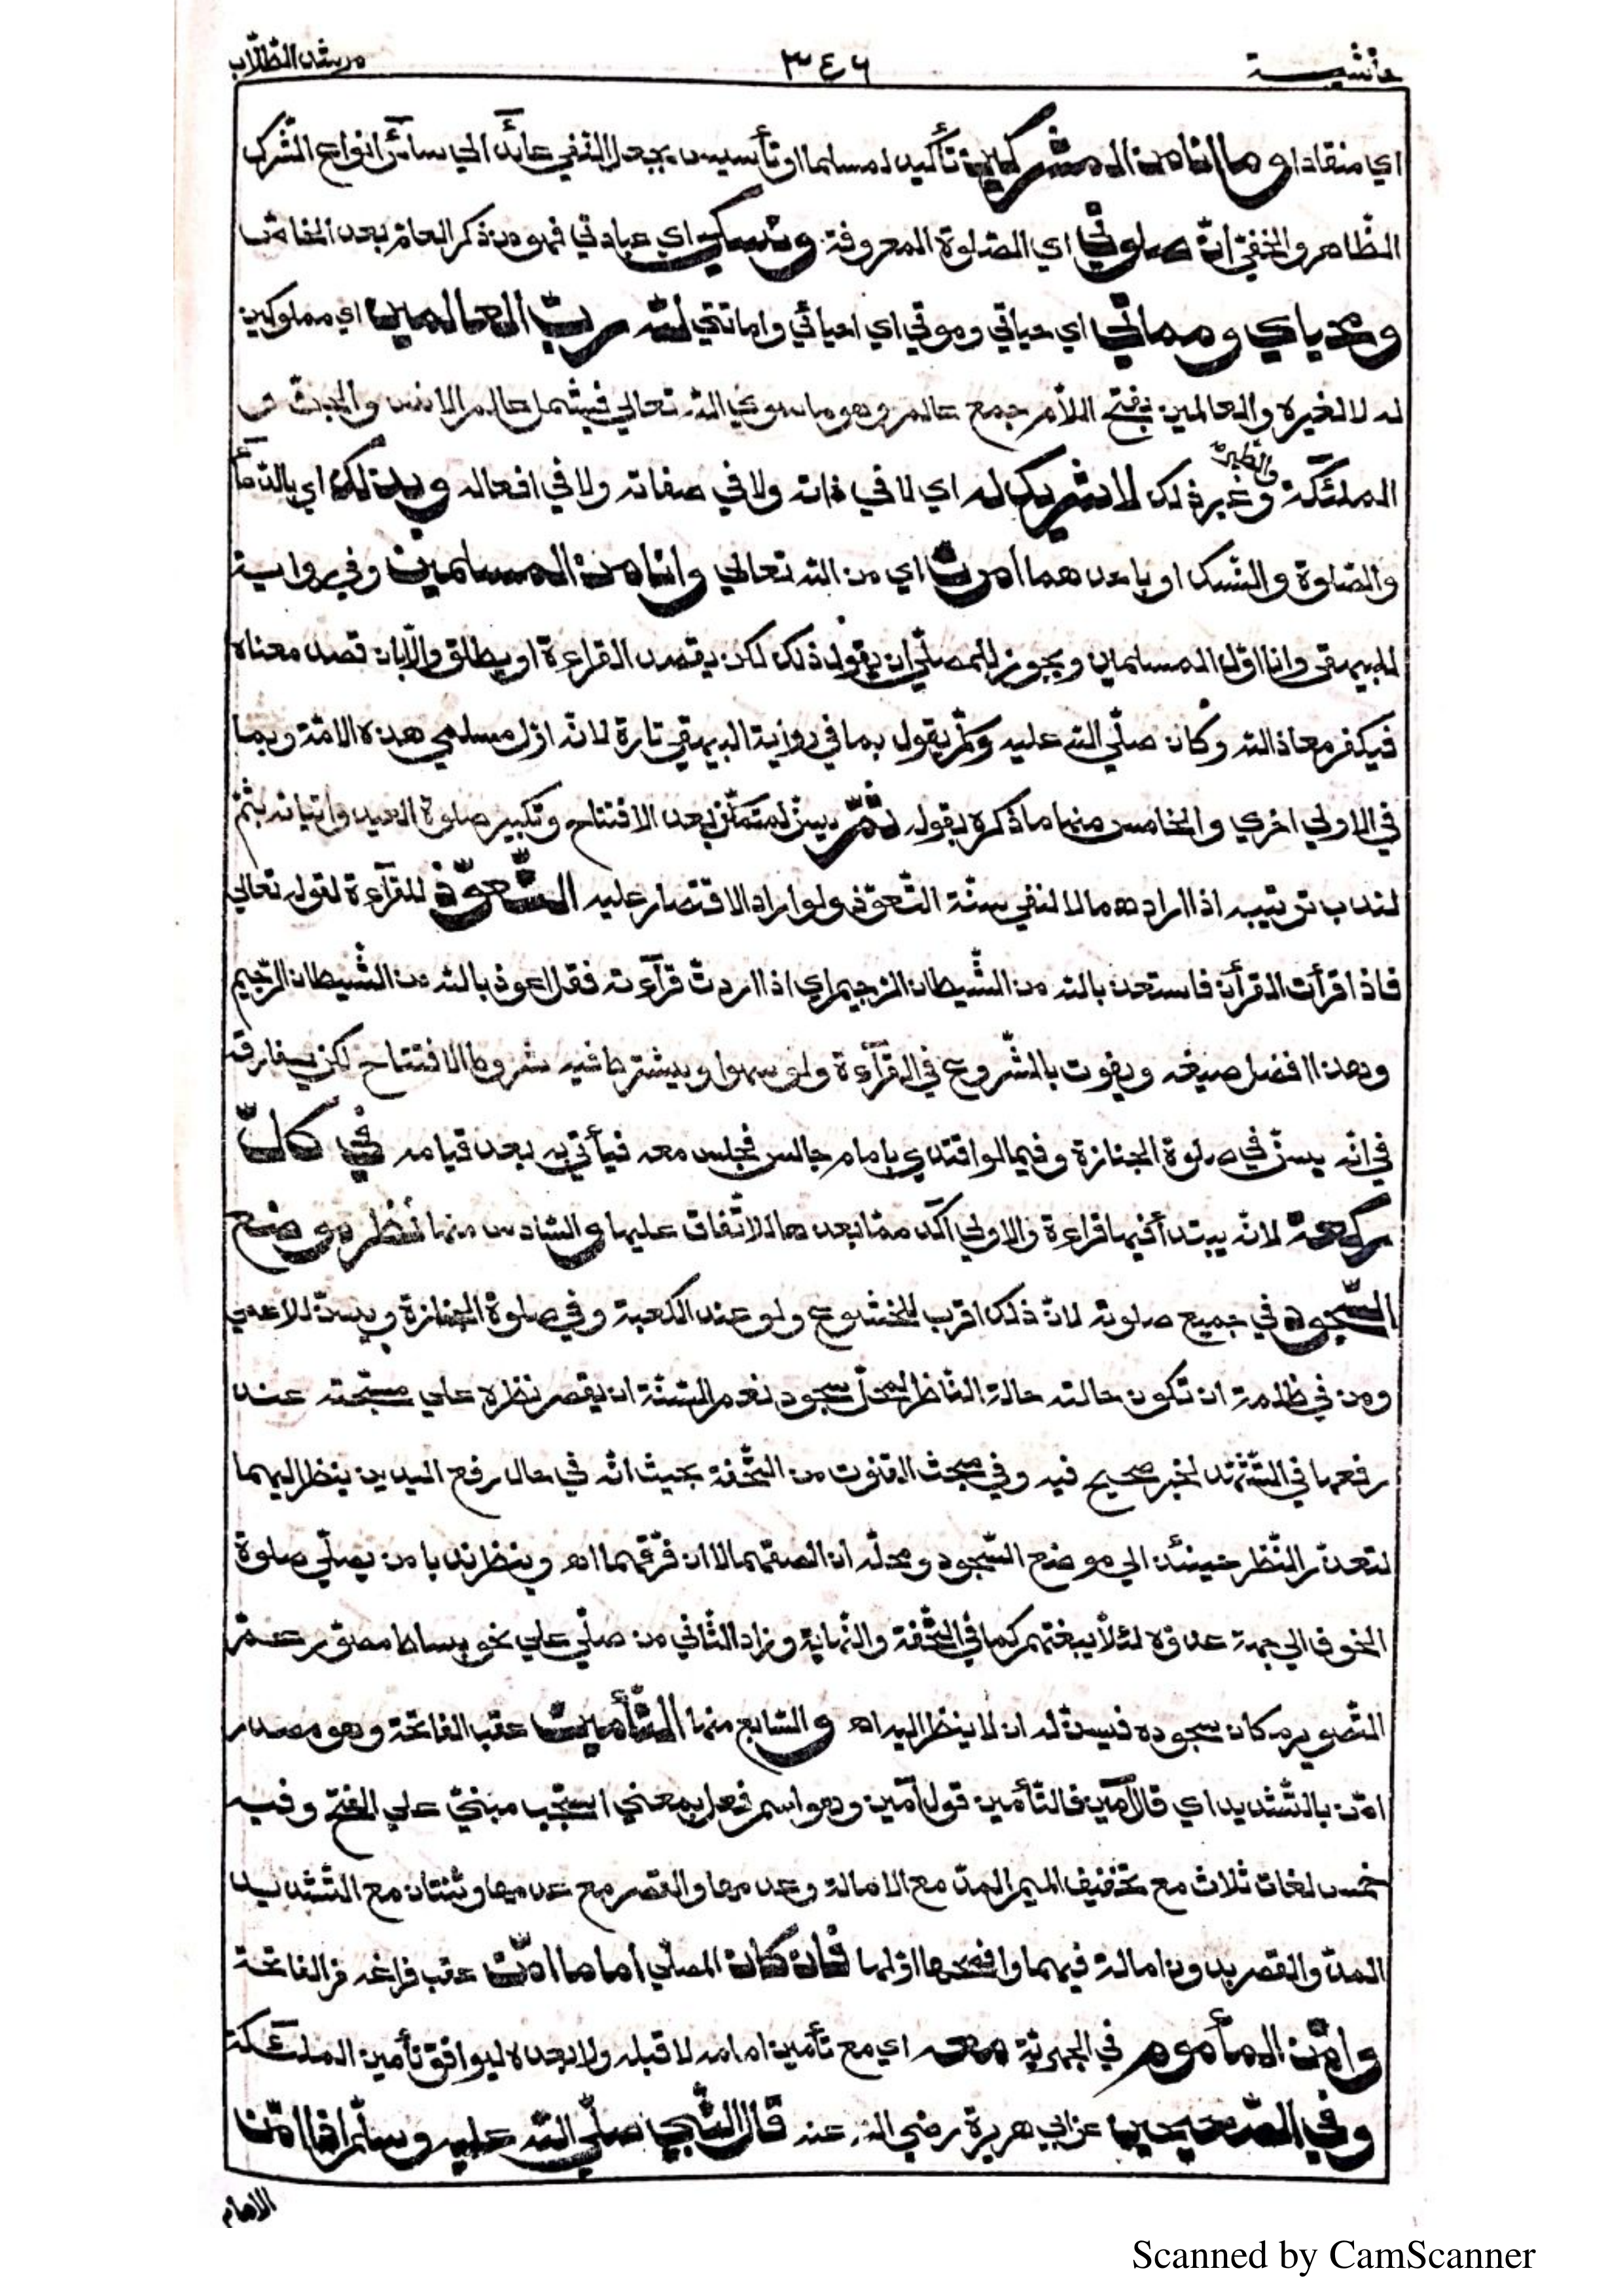 حاشية
٣٤٦
مرشد الطلّاب
اي منقادا وما انا من المشركين تأكيد لمسلما او تأسيس بجعل النفي عائد الى سائر انواع الشرك
الظّاهر والخفيّ انّ صلوتي اي الصّلوة المعروفة ونسكي اي عبادتي فهو من ذكر العام بعد الخاصّ
ومحياي ومماتي اي حياتي وموتي اي احيائي واماتتي للّه ربّ العالمين اي مملوكين
له لا لغيره والعالمين بفتح اللّام جمع عالم وهو ما سوى اللّه تعالى فيشمل عالم الانس والجنّ
الملئكة والطّير وغير ذلك لا شريك له اي لا في ذاته ولا في صفاته ولا في افعاله وبذلك اي بالدّعاء
والصّلوة والنّسك او باحدهما امرت اي من اللّه تعالى وانا من المسلمين وفي رواية
للبيهقي وانا اوّل المسلمين ويجوز للمصلّي ان يقول ذلك لكن يقصد القراءة او يطلق والّا بان قصد معناه
فيكفر معاذ اللّه وكان صلّى اللّه عليه وسلّم يقول بما في رواية البيهقي تارة لانّه اوّل مسلمي هذه الامّة وبما
في الاولى اخرى والخامس منها ما ذكره بقوله ثمّ يسنّ لمتمكّن بعد الافتتاح وتكبير صلوة العيد واتيانه بثمّ
لندب ترتيبه اذا ارادهما لا لنفي سنّة التّعوّذ ولو اراد الاقتصار عليه التّعوّذ للقرآءة لقوله تعالى
فاذا قرأت القرأن فاستعذ باللّه من الشّيطان الرّجيم اي اذا اردت قرآءته فقل اعوذ باللّه من الشّيطان الرّجيم
وهذا افضل صيغه ويفوت بالشّروع في القرآءة ولو سهوا ويشترط فيه شروط الافتتاح لكن يفارقه
في انّه يسنّ في صلوة الجنازة وفيما لو اقتدى بامام جالس فجلس معه فيأتي به بعد قيامه في كلّ
ركعة لانّه يبتدأ فيها قراءة والاولى آكد ممّا بعدها للاتّفاق عليها والسّادس منها نظر موضع
السّجود في جميع صلوته لانّ ذلك اقرب للخشوع ولو عند الكعبة وفي صلوة الجنازة ويسنّ للاعمى
ومن في ظلمة ان تكون حالته حالة النّاظر لمحلّ سجود نعم السّنّة ان يقصر نظره على مسبّحته عند
رفعها في التّشهّد لخبر صحيح فيه وفي مبحث القنوت من التّحفة بحيث انّه في حال رفع اليدين ينظر اليهما
لتعذّر النّظر حينئذ الى موضع السّجود ومحلّه ان الصقهما لا ان فرّقهما اه وينظر ندبا من يصلّي صلوة
الخوف الى جهة عدوّه لئلّا يبغتهم كما في التّحفة والنّهاية وزاد الثّاني من صلّى على نحو بساط مصوّر عمّ
التّصوير مكان سجوده فيسنّ له ان لا ينظر اليه اه والسّابع منها التّأمين عقب الفاتحة وهو مصدر
امّن بالتّشديد اي قال آمين فالتّأمين قول آمين وهو اسم فعل بمعنى استجب مبنيّ على الفتح وفيه
خمس لغات ثلاث مع تخفيف الميم المدّ مع الامالة وعدمها والقصر مع عدمها وثنتان مع التّشديد
المدّ والقصر بدون امالة فيهما وافصحها اوّلها فان كان المصلّي اماما امّن عقب فراغه من الفاتحة
وامّن المأموم في الجهريّة معه اي مع تأمين امامه لا قبله ولا بعده ليوافق تأمين الملئكة
وفي الصّحيحين عن ابي هريرة رضي اللّه عنه قال النّبي صلّى اللّه عليه وسلّم اذا امّن
الامام
Scanned by CamScanner